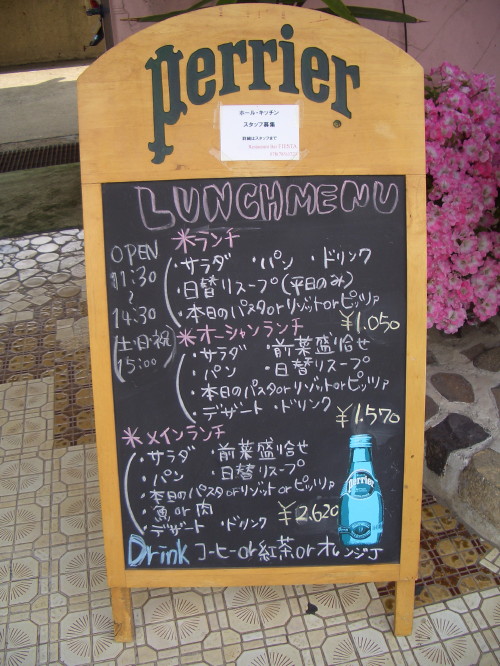 Perrier
ホール・キッチン
スタッフ募集
詳細はスタッフまで
LUNCH MENU
OPEN
11:30
~
14:30
(土・日・祝)
15:00
*ランチ
・サラダ ・パン ・ドリンク
・日替りスープ(平日のみ)
・本日のパスタorリゾットorピッツァ
¥1.050
*オーシャンランチ
・サラダ ・前菜盛り合せ
・パン ・日替りスープ
・本日のパスタorリゾットorピッツァ
・デザート ・ドリンク
¥1.570
*メインランチ
・サラダ ・前菜盛り合せ
・パン ・日替りスープ
・本日のパスタorリゾットorピッツァ
・魚or肉
・デザート ・ドリンク
¥2.620
perrier
Drink コーヒーor紅茶orオレンジJ